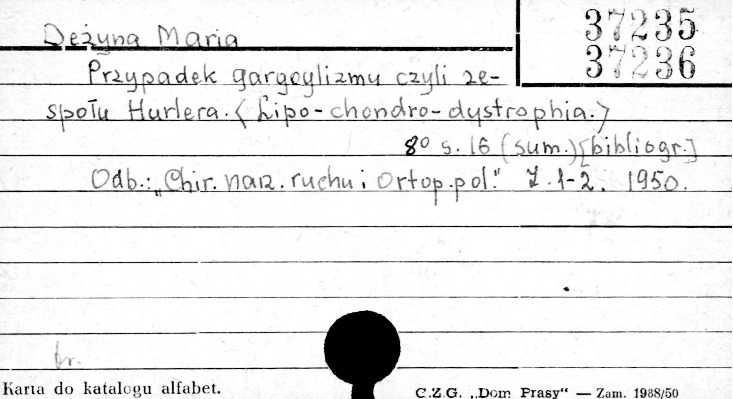 37235
37236
Deżyna Maria
Przypadek gargoylizmu czyli ze-
społu Hurlera. <Lipo-chondro-dystrophia.>
8° s. 16 (sum.) [bibliogr.]
Odb.: "Chir. narz. ruchu i Ortop. pol." Z. 1-2. 1950.
br.
Karta do katalogu alfabet.
C.Z.G. „Dom Prasy“ — Zam. 1988/50